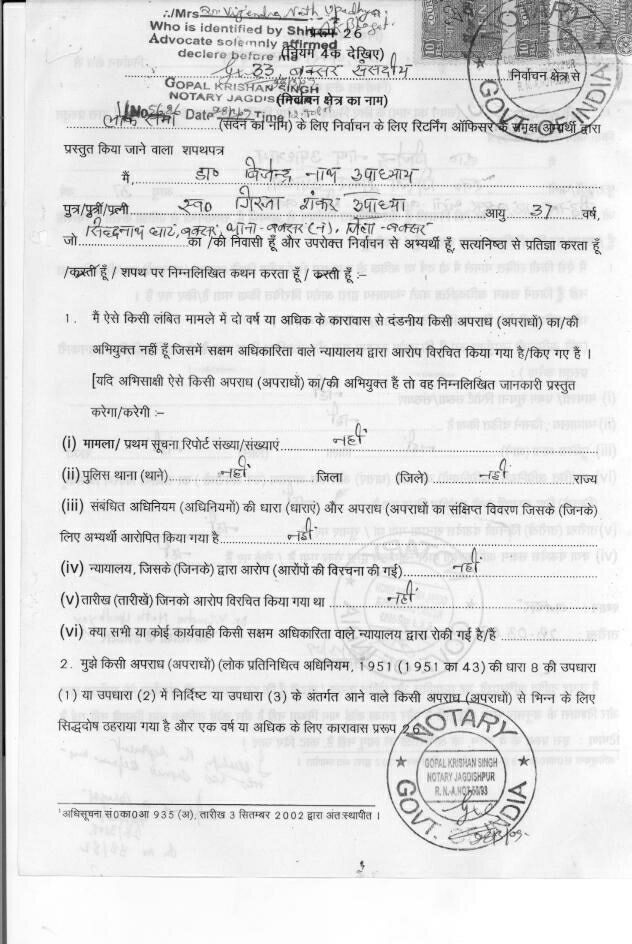 ./Mrs Dr. Vijendra Nath Upadhyay
Who is identified by Shri
Advocate solemnly affirmed
declere before me
प्ररूप 26
(नियम 4क देखिए)
33, बक्सर संसदीय
निर्वाचन क्षेत्र से
GOPAL KRISHAN SINGH
NOTARY JAGDISHPUR
(निर्वाचन क्षेत्र का नाम)
No 5686 Date Time
लोक सभा (सदन का नाम) के लिए निर्वाचन के लिए रिटर्निंग ऑफिसर के समक्ष अभ्यर्थी द्वारा
प्रस्तुत किया जाने वाला शपथपत्र
मैं डा० विजेन्द्र नाथ उपाध्याय
पुत्र/पुत्री/पत्नी स्व० गिरजा शंकर उपाध्या आयु 37 वर्ष,
सिद्धनाथ घाट, बक्सर, थाना-बक्सर (न), जिला-बक्सर
जो का /की निवासी हूँ और उपरोक्त निर्वाचन से अभ्यर्थी हूँ, सत्यनिष्ठा से प्रतिज्ञा करता हूँ
/करती हूँ / शपथ पर निम्नलिखित कथन करता हूँ / करती हूँ :–
1. मैं ऐसे किसी लंबित मामले में दो वर्ष या अधिक के कारावास से दंडनीय किसी अपराध (अपराधों) का/की
अभियुक्त नहीं हूँ जिसमें सक्षम अधिकारिता वाले न्यायालय द्वारा आरोप विरचित किया गया है/किए गए हैं ।
[यदि अभिसाक्षी ऐसे किसी अपराध (अपराधों) का/की अभियुक्त हैं तो वह निम्नलिखित जानकारी प्रस्तुत
करेगा/करेगी :–
(i) मामला/ प्रथम सूचना रिपोर्ट संख्या/संख्याएं नहीं
(ii) पुलिस थाना (थाने) नहीं जिला (जिले) नहीं राज्य
(iii) संबंधित अधिनियम (अधिनियमों) की धारा (धाराएं) और अपराध (अपराधों का संक्षिप्त विवरण जिसके (जिनके)
लिए अभ्यर्थी आरोपित किया गया है नहीं
(iv) न्यायालय, जिसके (जिनके) द्वारा आरोप (आरोपों की विरचना की गई) नहीं
(v) तारीख (तारीखें) जिनको आरोप विरचित किया गया था नहीं
(vi) क्या सभी या कोई कार्यवाही किसी सक्षम अधिकारिता वाले न्यायालय द्वारा रोकी गई है/हैं
2. मुझे किसी अपराध (अपराधों) (लोक प्रतिनिधित्व अधिनियम, 1951 (1951 का 43) की धारा 8 की उपधारा
(1) या उपधारा (2) में निर्दिष्ट या उपधारा (3) के अंतर्गत आने वाले किसी अपराध (अपराधों) से भिन्न के लिए
सिद्धदोष ठहराया गया है और एक वर्ष या अधिक के लिए कारावास प्ररूप 26
NOTARY
GOPAL KRISHAN SINGH
NOTARY JAGDISHPUR
GOVT. OF INDIA
NOTARY
GOVT. OF INDIA
¹अधिसूचना सं0का0आ 935 (अ), तारीख 3 सितम्बर 2002 द्वारा अंतःस्थापित ।